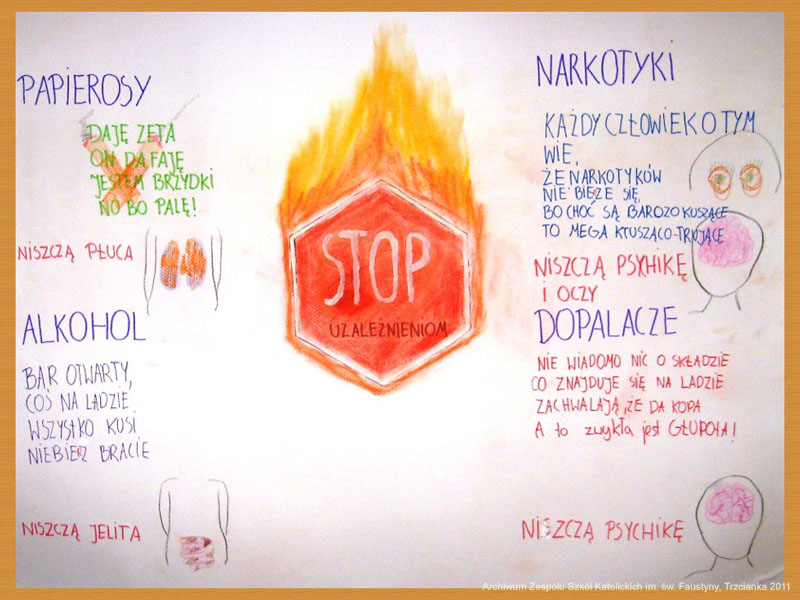 PAPIEROSY
DAJĘ ZETA
ON DA FAJĘ
JESTEM BRZYDKI
NO BO PALĘ!
NISZCZĄ PŁUCA
ALKOHOL
BAR OTWARTY,
COŚ NA LADZIE
WSZYSTKO KUSI
NIEBIERZ BRACIE
NISZCZĄ JELITA
STOP
UZALEŻNIENIOM
NARKOTYKI
KAŻDY CZŁOWIEK O TYM
WIE,
ŻE NARKOTYKÓW
NIE BIEŻE SIĘ,
BO CHOĆ SĄ BARDZO KUSZĄCE
TO MEGA KTUSZĄCO-TRUJĄCE
NISZCZĄ PSYCHIKĘ
I OCZY
DOPALACZE
NIE WIADOMO NIC O SKŁADZIE
CO ZNAJDUJE SIĘ NA LADZIE
ZACHWALAJĄ, ŻE DA KOPA
A to zwykła jest GŁUPOTA!
NISZCZĄ PSYCHIKĘ
Archiwum Zespołu Szkół Katolickich im. św. Faustyny, Trzcianka 2011